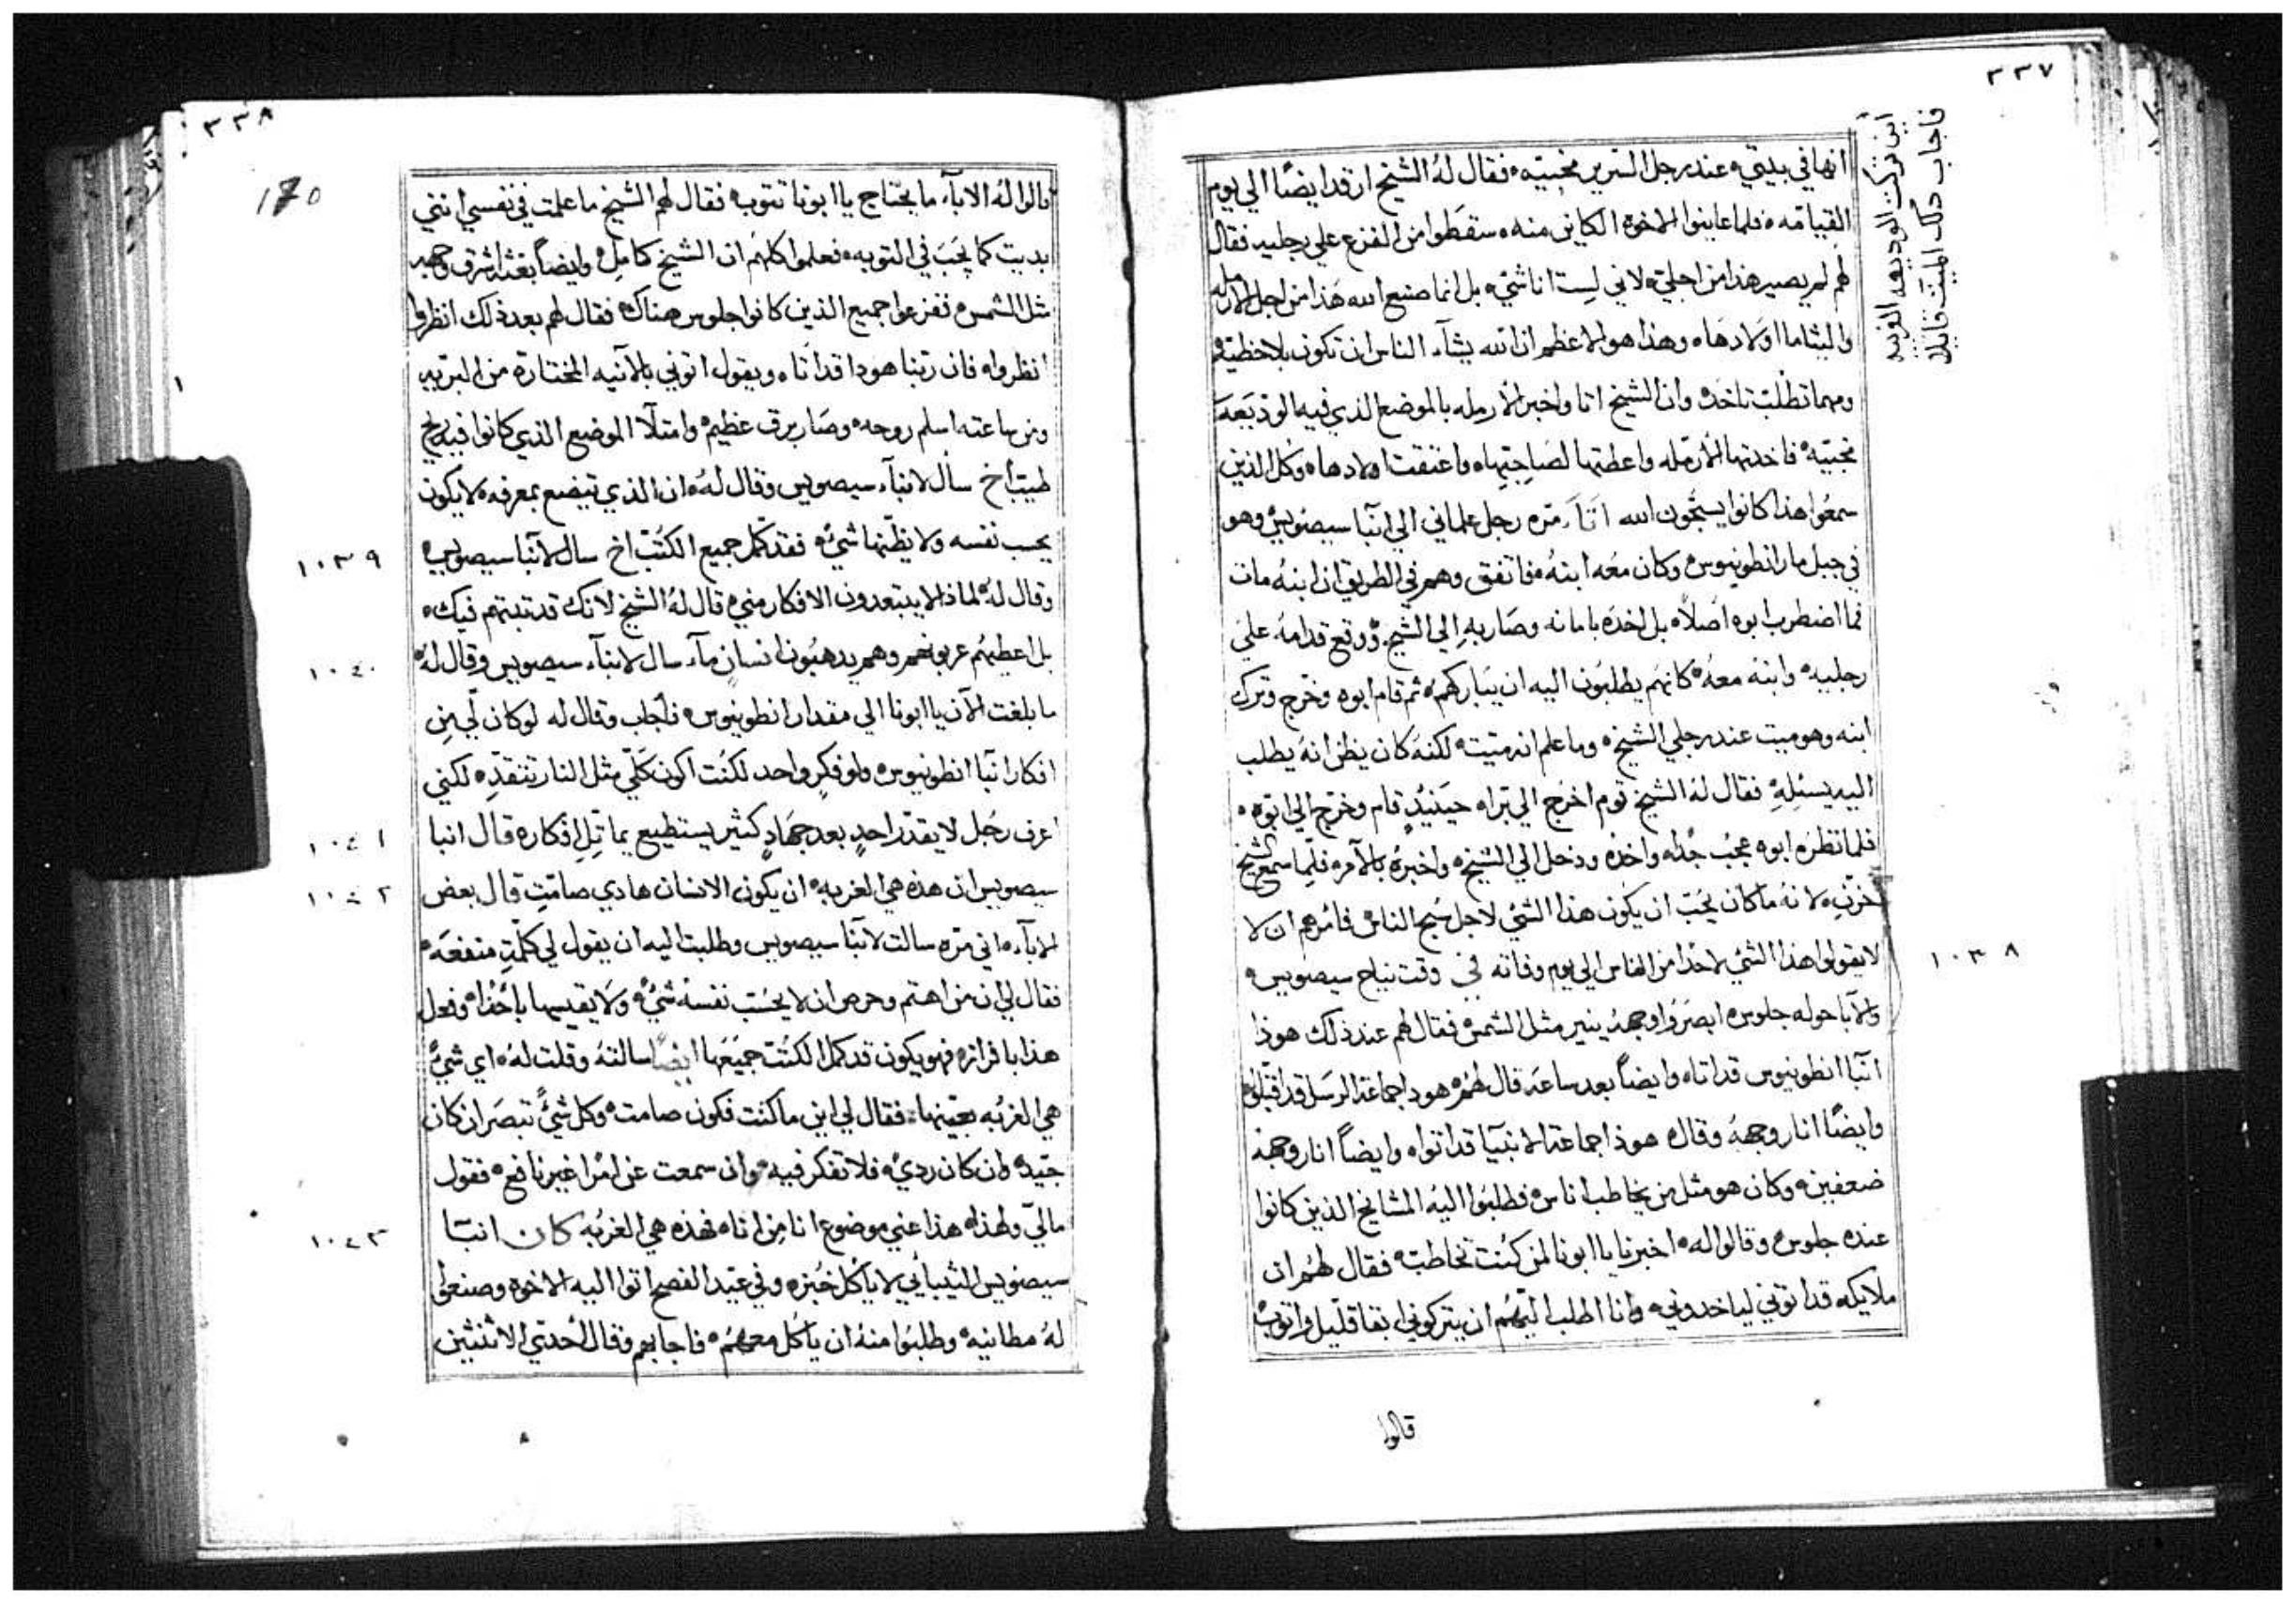 ٣٣٧
اين تركت الوديعه الغريبه
فاجاب دلك الميت قايلا
انها في بيتي عند رجل السرير مخبيه فقال له الشيخ ارقد ايضًا الي يوم
القيامه فلما عاينوا الاخوه الكاين منه سقطوا من الفزع علي رجليه فقال
لهم لم يصير هذا من اجلي لاني لست انا شي بل انما صنع الله هذا من اجل الارمله
واليتاما اولادها وهذا هو الاعظم ان الله يشآء الناس ان تكون بلا خطيه
ومهما تطلب تاخد وان الشيخ اتا واخبر الارمله بالموضع الذي فيه الوديعه
مخبيه فاخدتها الارمله واعطتها لصاحبتها واعتقت اولادها وكل الذين
سمعوا هذا كانوا يسبحون الله اتآ مره رجل علماني الي انبا سيصويس وهو
في جبل مار انطونيوس وكان معه ابنه فاتفق وهم في الطريق ان ابنه مات
فما اضطرب ابوه اصلًا بل اخده بامانه وصار به الي الشيخ ووقع قدامه علي
رجليه وابنه معه كانهم يطلبون اليه ان يباركهم ثم قام ابوه وخرج وترك
ابنه وهو ميت عند رجلي الشيخ وما علم انه ميت لكنه كان يظن انه يطلب
اليه يسئله فقال له الشيخ قوم اخرج الي برا حينيدٍ قام وخرج الي ابوه
فلما نظره ابوه عجب جدًا واخده ودخل الي الشيخ واخبره بالامر فلما سمع الشيخ
حزن لانه ما كان يحب ان يكون هذا الشي لاجل سبح الناس فامرهم ان لا
لا يقولوا هذا الشي لاحدًا من الناس الي يوم وفاته في وقت نياح سيصويس
١٠٣٨
والابا حوله جلوس ابصروا وجهه ينير مثل الشمس فقال لهم عند ذلك هوذا
انبا انطونيوس قد اتا وايضًا بعد ساعه قال لهم هوذا جماعة الرسل قد اقبلوا
وايضًا انار وجهه وقال هوذا جماعة الانبيا قد اتوا وايضًا انار وجهه
ضعفين وكان هو مثل من يخاطب اناس فطلبوا اليه المشايخ الذين كانوا
عنده جلوس وقالوا له اخبرنا يا ابونا لمن كنت تخاطب فقال لهم ان
ملايكه قد اتوني لياخدوني وانا اطلب اليهم ان يتركوني ابقا قليل واتوب
قالوا
٣٣٨
170
قالوا له الابآء ما يحتاج يا ابونا تتوب فقال لهم الشيخ ما علمت في نفسي انني
بديت كما يجب في التوبه فعلموا كلهم ان الشيخ كامل وايضًا بغتة اشرق وجهه
مثل الشمس ففزعوا جميع الذين كانوا جلوس هناك فقال لهم بعد ذلك انظروا
انظروا فان ربنا هوذا قد اتا ويقول اتوني بالانيه المختاره من البريه
ومن ساعته اسلم روحه وصار برق عظيم وامتلا الموضع الذي كانوا فيه ريح
طيب اخ سال لانبآ سيصويس وقال له ان الذي تيضع بمعرفه لا يكون
يحسب نفسه ولا يظنها شي فقد كمل جميع الكتب اخ سال لانبا سيصويس
١٠٣٩
وقال له لماذا لا يبتعدون الافكار مني قال له الشيخ لانك قد تبتهم فيك
بل اعطيهم عربونهم وهم يدهبون انسان مآ سال لانبآ سيصويس وقال له
١٠٤٠
ما بلغت الان يا ابونا الي مقدار انطونيوس فاجاب وقال له لو كان لي من
افكار انبا انطونيوس ولو فكرٍ واحد لكنت اكون كلي مثل النار تتقد لكني
اعرف رجل لا يقدر احدٍ بعد جهادٍ كثير يستطيع يماتل افكاره قال انبا
١٠٤١
سيصويس ان هذه هي الغربه ان يكون الانسان هادي صامت قال بعض
١٠٤٢
الابآء اني مره سالت لانبا سيصويس وطلبت اليه ان يقول لي كلمة منفعه
فقال لي ان من اهتم وحرص ان لا يحسب نفسه شي ولا يقيسها باحدًا وفعل
هذا بافرازه فهو يكون قد كمل الكتب جميعها ايضًا سالته وقلت له اي شي
هي الغربه بعينها فقال لي اين ما كنت فكون صامت وكل شي تبصر ان كان
جيد وان كان ردي فلا تفكر فيه وان سمعت عن امرًا غير نافع فقول
مالي ولهذا هذا عني موضوع انا من انا فهذه هي الغربه كان انبا
١٠٤٣
سيصويس التيبايي لا ياكل خبزه وفي عيد الفصح اتوا اليه الاخوه وصنعوا
له مطانيه وطلبوا منه ان ياكل معهم فاجابهم وقال احدي الاثنتين